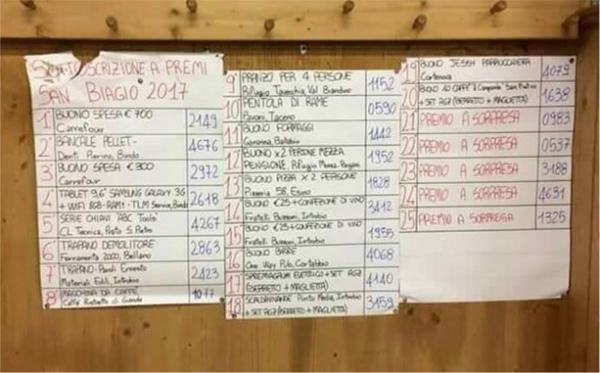 SOTTOSCRIZIONE A PREMI
SAN BIAGIO 2017
1° BUONO SPESA €700 2149
Carrefour
2° BANCALE PELLET- 4676
Denti Pierino, Bindo
3 BUONO SPESA €300 2972
Carrefour
4 TABLET 9,6" SAMSUNG GALAXY 3G 2618
+ WIFI 8GB-RAM1 - TLM Service, Bindo
5 SERIE CHIAVI "ABC Tools" 4267
CL Tecnica, Prato S. Pietro
6 TRAPANO DEMOLITORE 2863
Ferramenta 2000, Bellano
7 TRAPANO-Paroli Ernesto 2423
Materiali Edili, Introbio
8 MACCHINA DA CAFFE' 1077
Caffè Ristretto di
9° PRANZO PER 4 PERSONE 1152
Rifugio Val Biandino
10 PENTOLA DI RAME 0590
Pavoni, Taceno
11 BUONO FORMAGGI 1442
Ballabio
12 BUONO x 2 PERSONE MEZZA 1952
PENSIONE, Rifugio
13 BUONO PIZZA x 2 PERSONE 1828
Pizzeria 58, Esino
14 BUONO €25 + CONFEZIONE DI VINO 3412
Fratelli Introbio
15 BUONO €25 + CONFEZIONE DI VINO 1955
Fratelli Introbio
16 BUONO BIRRE 4068
One Way Pub, Cortabbio
17 SPREMIAGRUMI ELETTRICO + SET AG7 4140
(BERRETTO + MAGLIETTA)
18 SCALDAVIVANDE Punto Media, Introbio 3159
+ SET AG7 (BERRETTO + MAGLIETTA)
19 BUONO JESSH PARRUCCHIERA 4079
Cortenova
20 BUONO 10 CAFFE' 1638
+ SET AG7 (BERRETTO + MAGLIETTA)
21 PREMIO A SORPRESA 0983
22 PREMIO A SORPRESA 0537
23 PREMIO A SORPRESA 3188
24 PREMIO A SORPRESA 4631
25 PREMIO A SORPRESA 1325